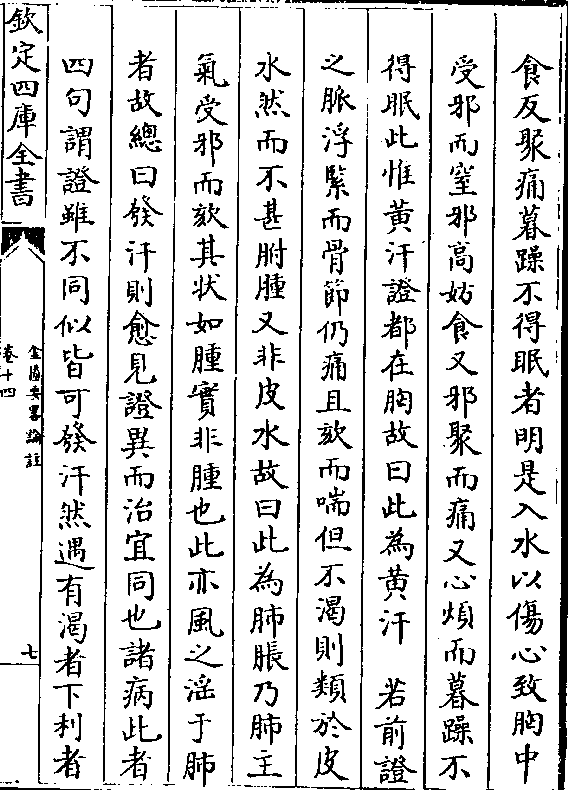 食反聚痛暮躁不得眠者明是入水以傷心致胸中
受邪而窒邪高妨食又邪聚而痛又心煩而暮躁不
得眠此惟黄汗證都在胸故曰此為黄汗　若前證
之脈浮緊而骨節仍痛且欬而喘但不渴則類於皮
水然而不甚胕腫又非皮水故曰此為肺脹乃肺主
氣受邪而欬其状如腫實非腫也此亦風之淫于肺
者故總曰發汗則愈見證異而治宜同也諸病此者
四句謂證雖不同似皆可發汗然遇有渴者下利者
欽定四庫全書
金匱要畧論註
卷十四
七